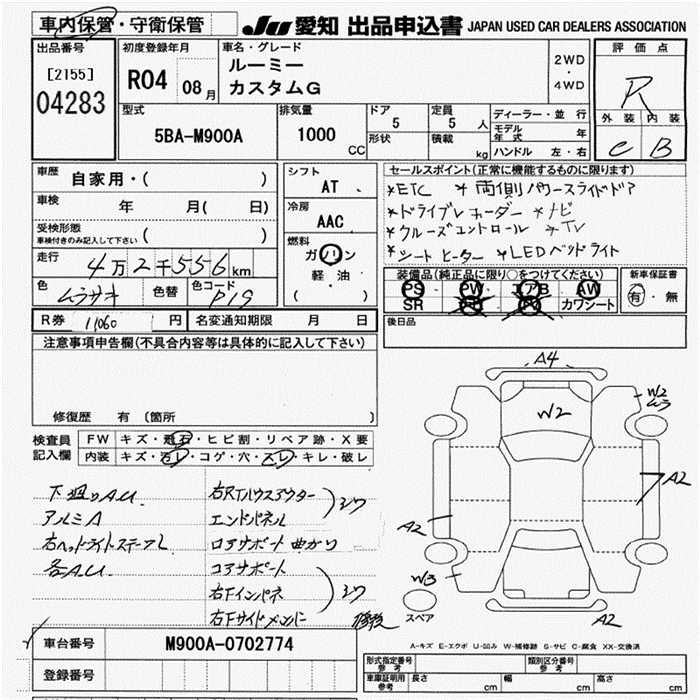 車内保管・守衛保管
JU 愛知 出品申込書 JAPAN USED CAR DEALERS ASSOCIATION
出品番号
[2155]
04283
初度登録年月
R04 08月
車名・グレード
ルーミー
カスタムG
2WD
・
4WD
評価点
R
外装 内装
C B
型式
5BA-M900A
排気量
1000
CC
ドア
5
形状
定員
5 人
積載
kg
ディーラー・並行
モデル年式 年
ハンドル 左・右
車歴 自家用・( )
車検 年 月( 日)
受検形態
車検付きのみ記入して下さい ( )
走行 4万2千556km
色 ムラサキ 色替 色コード P19
( )
シフト
AT
冷房
AAC
燃料
ガソリン
軽・油
( )
セールスポイント(正常に機能するものに限ります)
*ETC *両側パワースライドドア
*ドライブレコーダー *ナビ
*クルーズコントロール *TV
*シートヒーター *LEDヘッドライト
装備品(純正品に限り○をつけてください)
PS PW エアB AW
SR カワシート
新車保証書
有・無
後日品
R券 11060 円 名変通知期限 月 日
注意事項申告欄(不具合内容等は具体的に記入して下さい)
修復歴 有 (箇所 )
検査員
記入欄
FW キズ・飛石・ヒビ割・リペア跡・X要
内装 キズ・汚レ・コゲ・穴・スレ・キレ・破レ
下廻りAU
アルミA
各AU
エンドパネル
コアサポート
右Fインパネ
右Fサイドメンバー
修復
A4
W2
W2
ムラ
A2
A2
W3
A2
スペア
A-キズ E-エクボ U-凹み W-補修跡 S-サビ C-腐食 XX-交換済
車台番号 M900A-0702774
登録番号
型式指定番号
参考
類別区分番号
参考
車庫証明用
参考
長さ cm 幅 cm 高さ cm